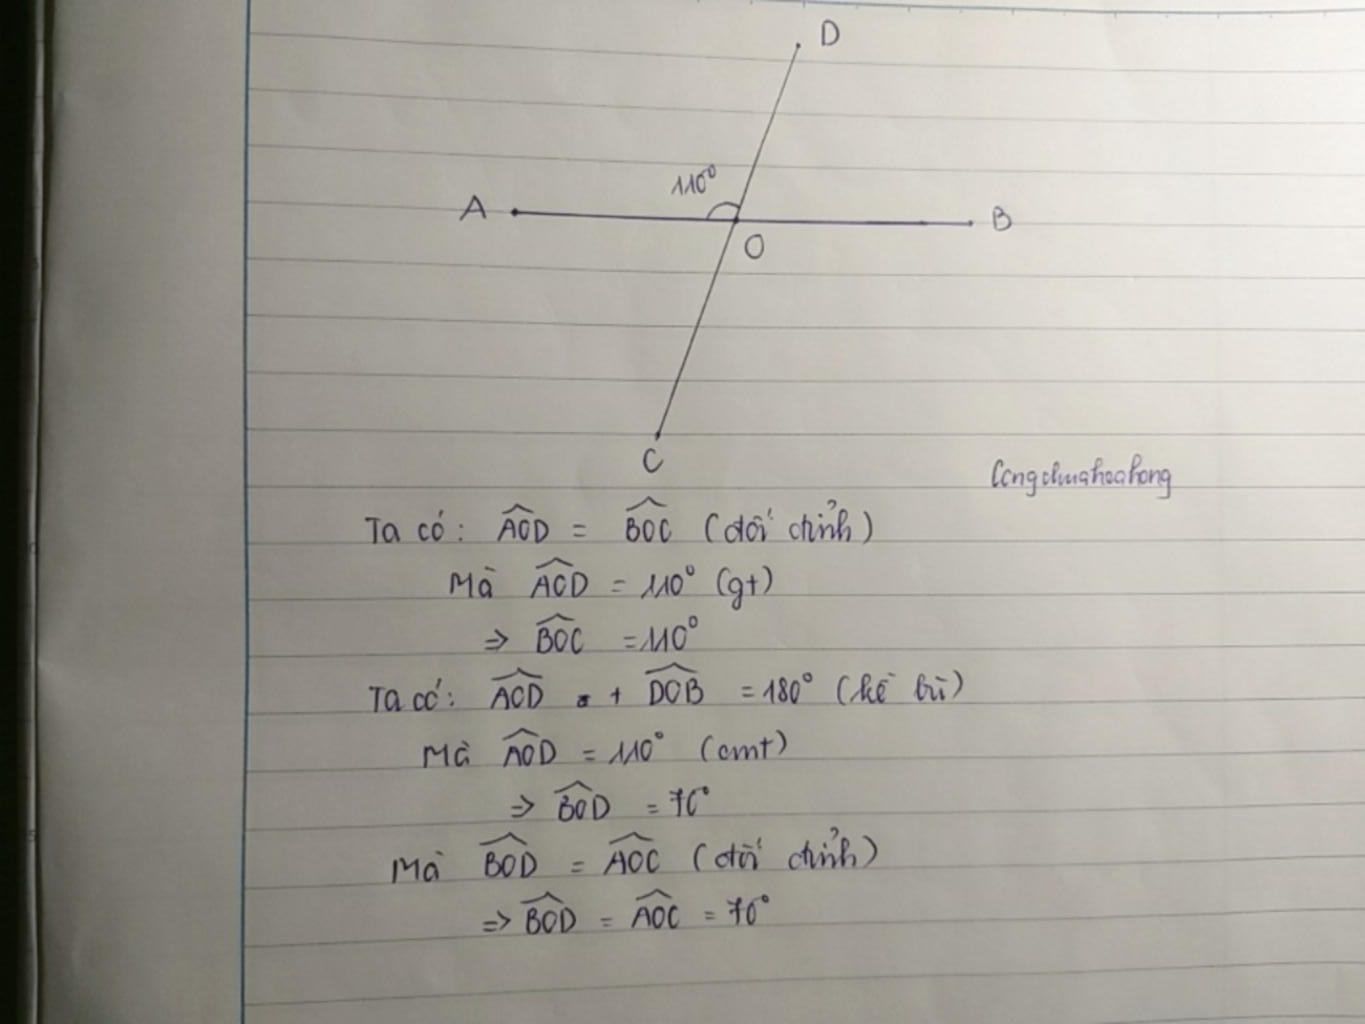 D
110°
A
B
O
C
Congchuahoahong
Ta có: AOD = BOC (đối đỉnh)
Mà AOD = 110° (gt)
⇒ BOC = 110°
Ta có: AOD + DOB = 180° (kề bù)
Mà AOD = 110° (cmt)
⇒ BOD = 70°
Mà BOD = AOC (đối đỉnh)
⇒ BOD = AOC = 70°